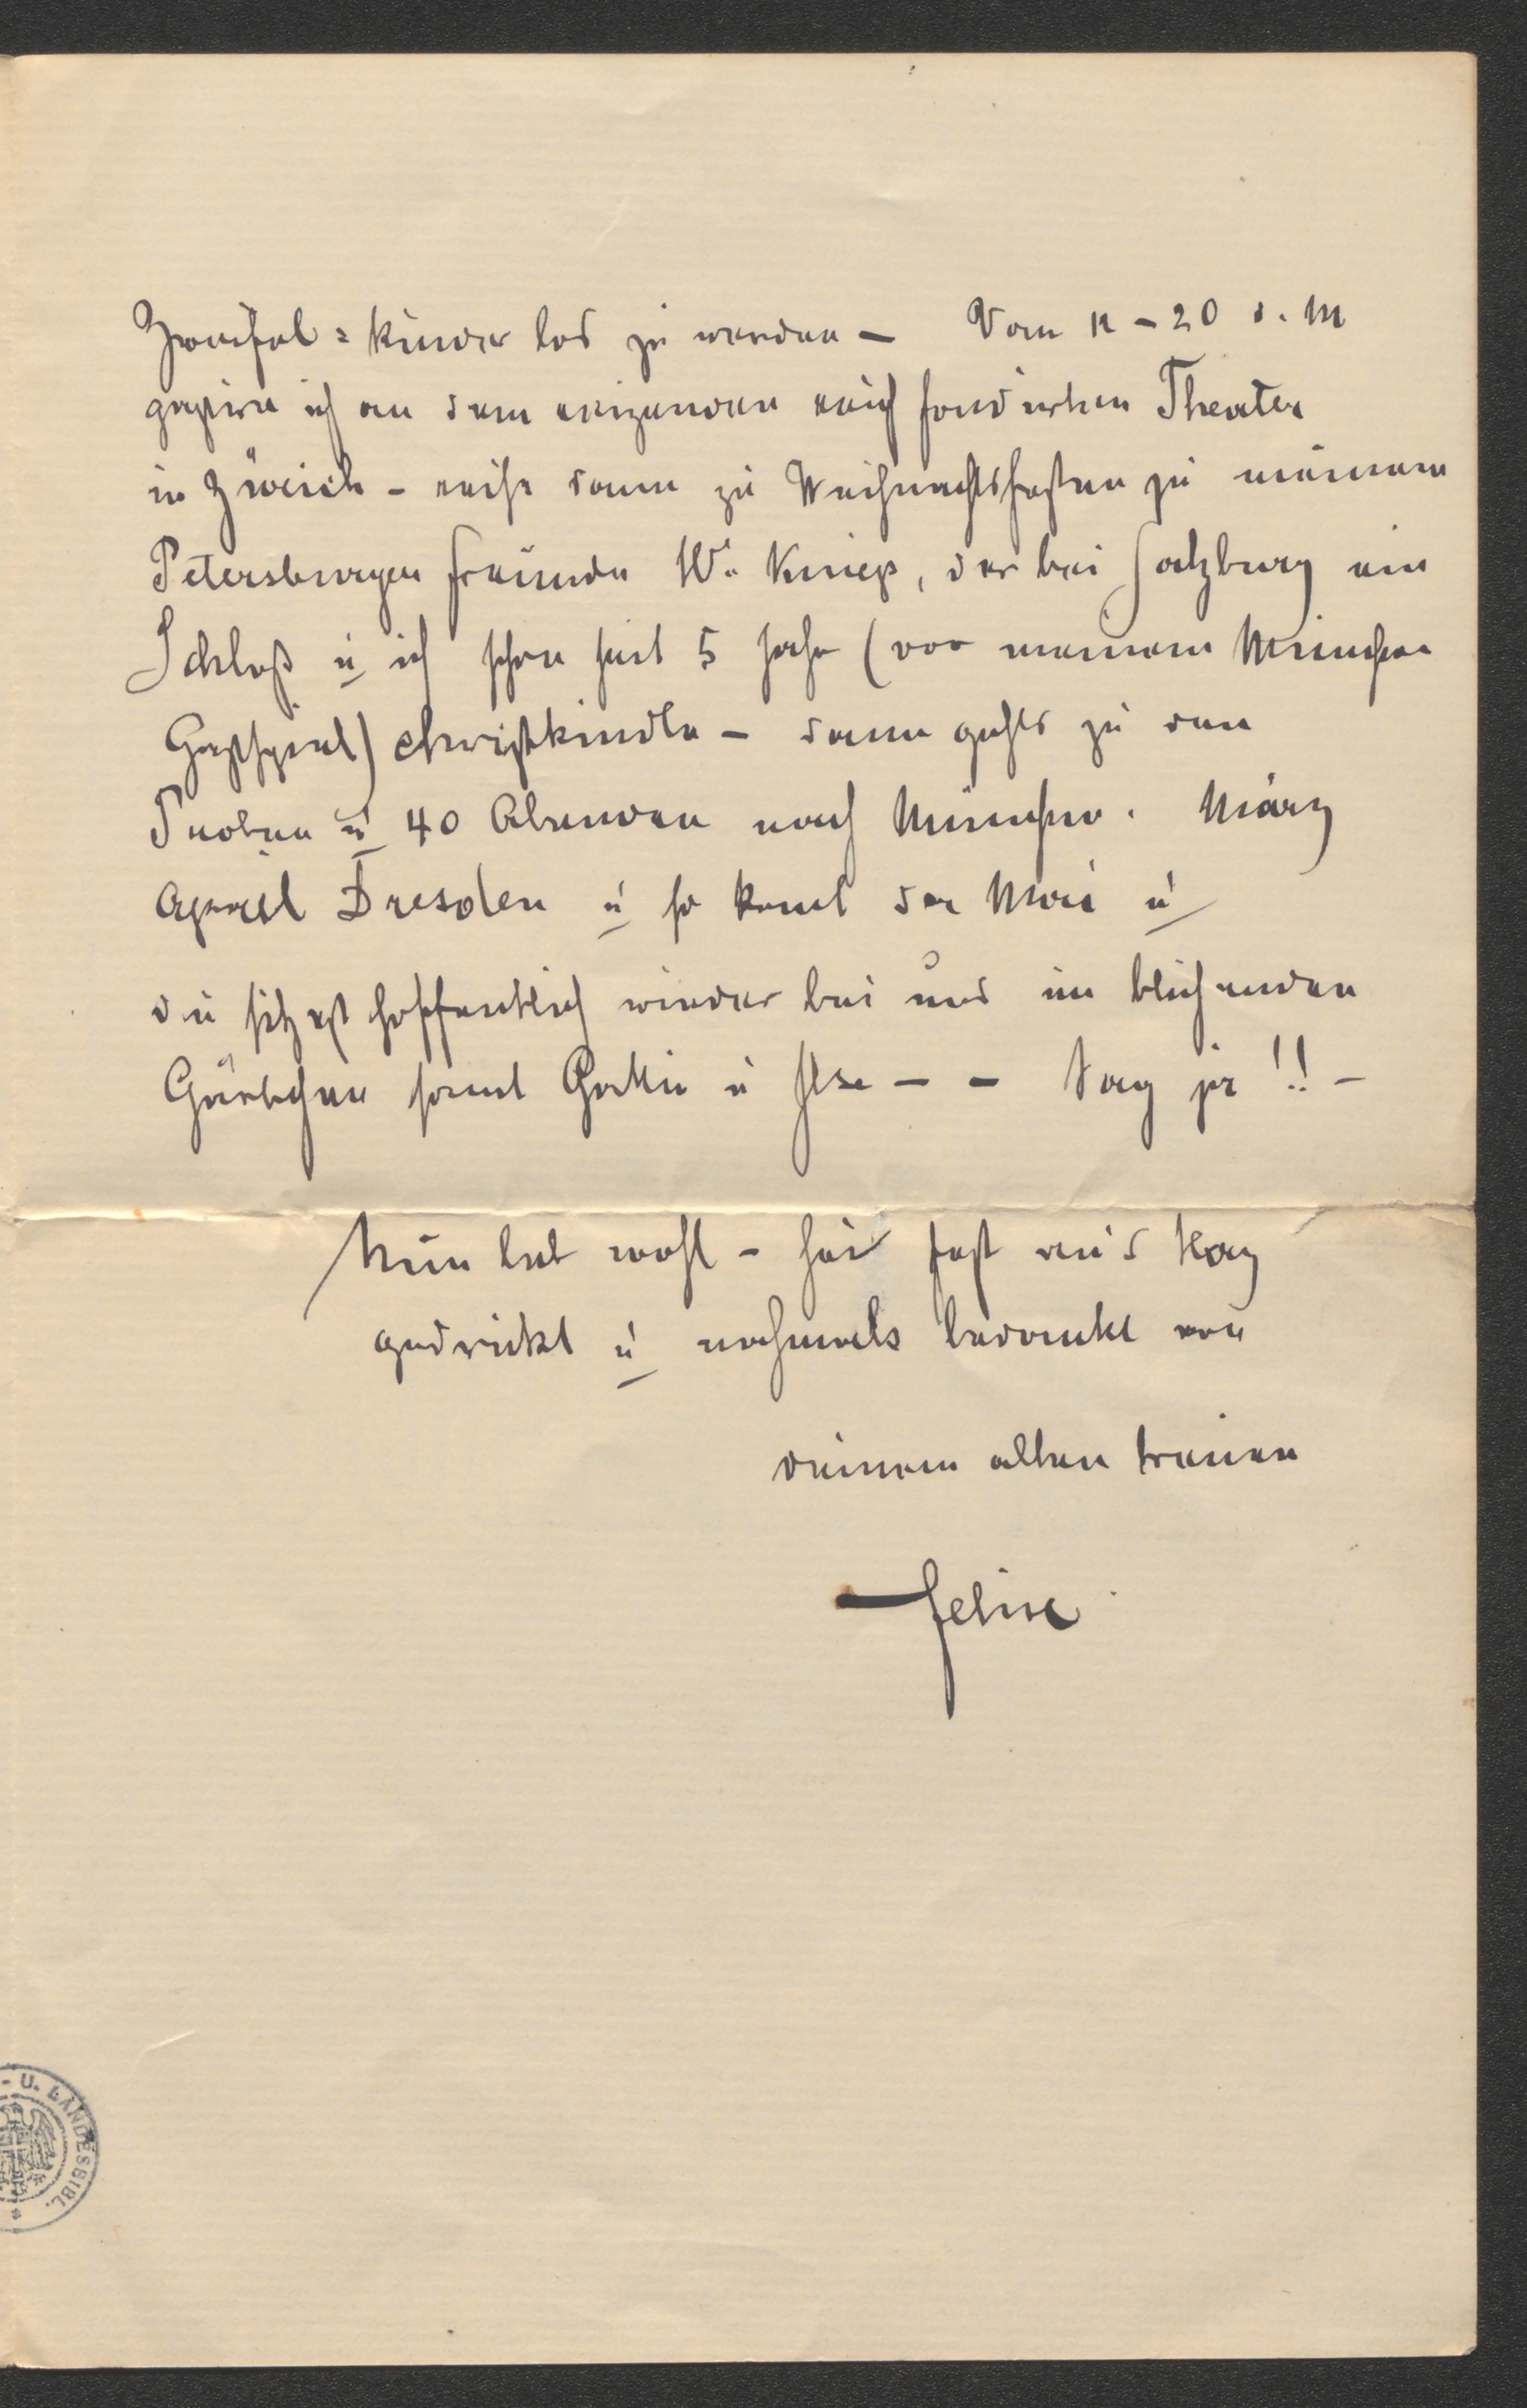 Zweifel=kinder los zu werden – Vom 12 – 20 d. M
gastire ich an dem reizenden reich fondirten Theater
in Zürich – reise dann zu Weihnachtsfesten zu meinem
Petersburger Freunde W. Kniep, der bei Salzburg ein
Schloß u ich schon seit 5 Jahr (vor meinem Münchner
Gastspiel) christkindle – dann gehts zu den
Proben u 40 Abenden nach München. März
April Dresden u so komt der Mai u
du sitzest hoffentlich wieder bei uns im blühenden
Gärtchen samt Gattin u Ilse – – Sag ja!! –
Nun leb wohl – sei fest an's Herz
gedrückt u nochmals bedankt von
deinem alten treuen
Felix
- U. LANDESBIBL.